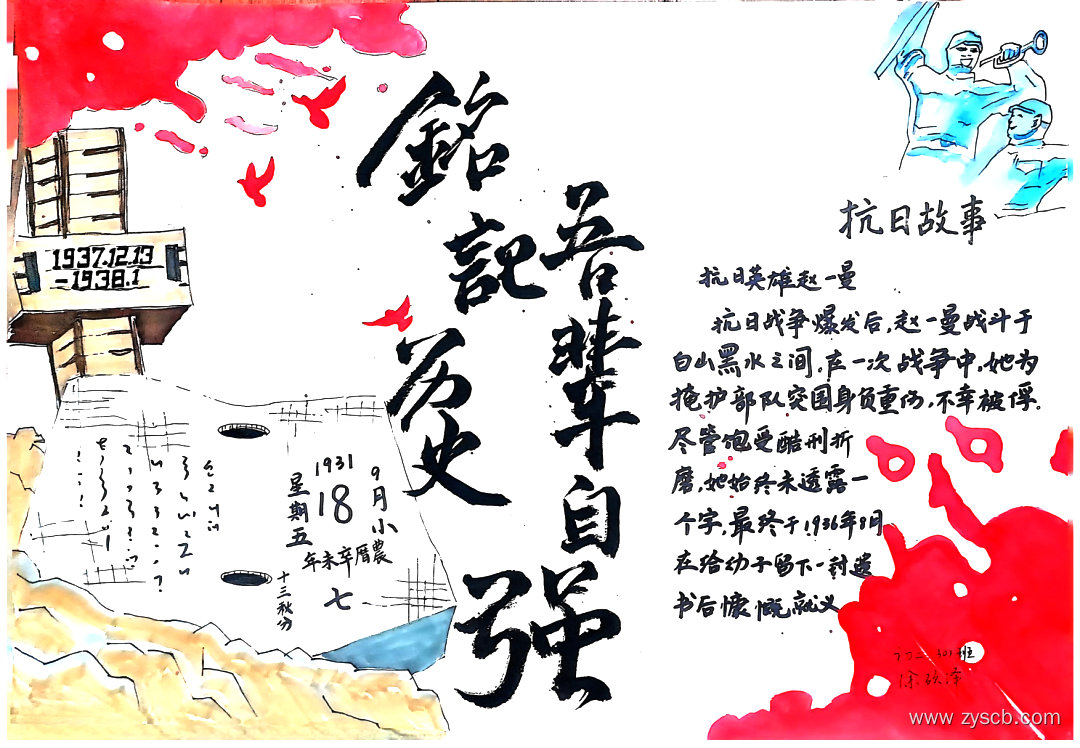 銘記历史
吾辈自强
1937.12.13
-1938.1
1931
9月小
18
星期五
農曆辛未年
七
十三秋分
抗日故事
抗日英雄赵一曼
抗日战争爆发后,赵一曼战斗于
白山黑水之间,在一次战争中,她为
掩护部队突围身负重伤,不幸被俘。
尽管饱受酷刑折
磨,她始终未透露一
个字,最终于1936年8月
在给幼子留下一封遗
书后慷慨就义
301班
www.zyscb.com